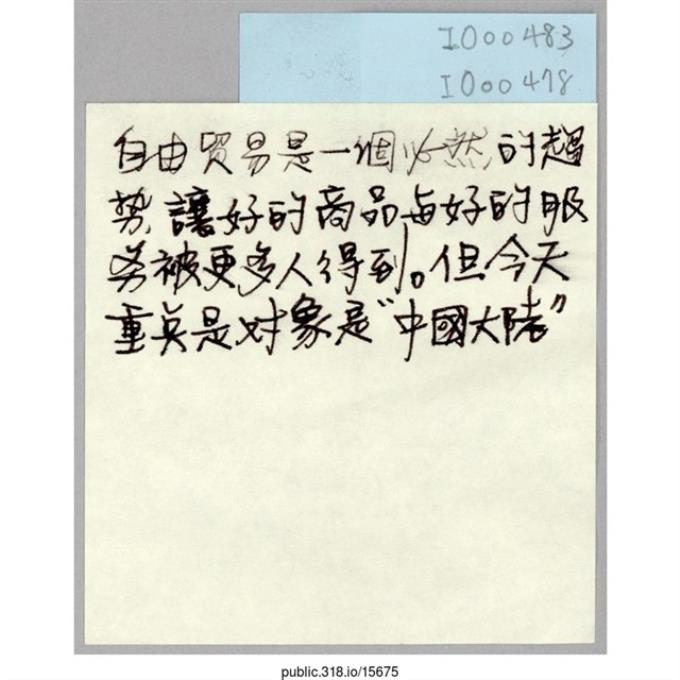 I000483
I000478
自由貿易是一個必然的趨
势讓好的商品与好的服
务被更多人得到。但今天
重奌是对象是“中國大陸”
public.318.io/15675